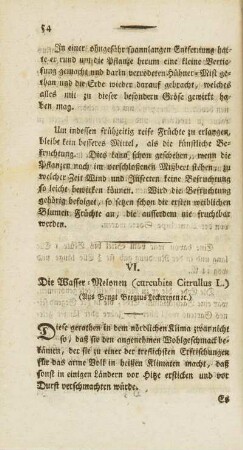 54
In einer ohngefehr spannlangen Entfernung hat-
te er rund um die Pflanze herum eine kleine Vertie-
fung gemacht und darin verrotteten Hühner-Mist ge-
than und die Erde wieder darauf gebracht, welches
alles mit zu dieser besondern Gröse gewirkt ha-
ben mag.
Um indessen frühzeitig reife Früchte zu erlangen,
bleibt kein besseres Mittel, als die künstliche Be-
fruchtung. Dies kann schon geschehen, wenn die
Pflanzen noch im verschlossenen Mistbeet stehen, zu
welcher Zeit Wind und Insecten keine Befruchtung
so leicht bewirken können. Wird die Befruchtung
gehörig befolget, so setzen die ersten weiblichen
Blumen Früchte an, die ausserdem nie fruchtbar
werden.
VI.
Die Wasser-Melonen (cucurbita Citrullus L.)
(Aus Bengt Bergius Leckereyen ꝛc.)
Diese gerathen in dem nördlichen Klima zwar nicht
so, daß sie den angenehmen Wohlgeschmack be-
kämen, der sie zu einer der treflichsten Erfrischungen
für das arme Volk in heissen Klimaten macht, daß
sonst in einigen Ländern vor Hitze ersticken und vor
Durst verschmachten würde.
Es